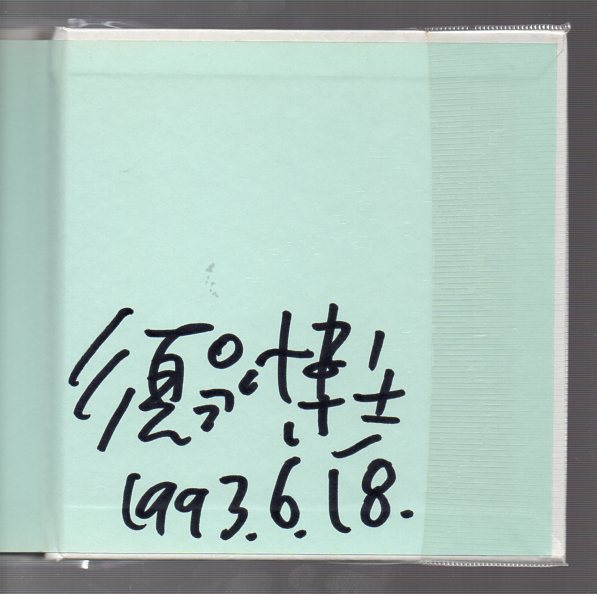 須永博士
1993.6.18.